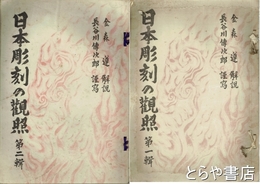 金森遵 解説
長谷川傳次郎 謹寫
日本彫刻の觀照
第二輯
金森遵 解説
長谷川傳次郎 謹寫
日本彫刻の觀照
第一輯
とらや書店